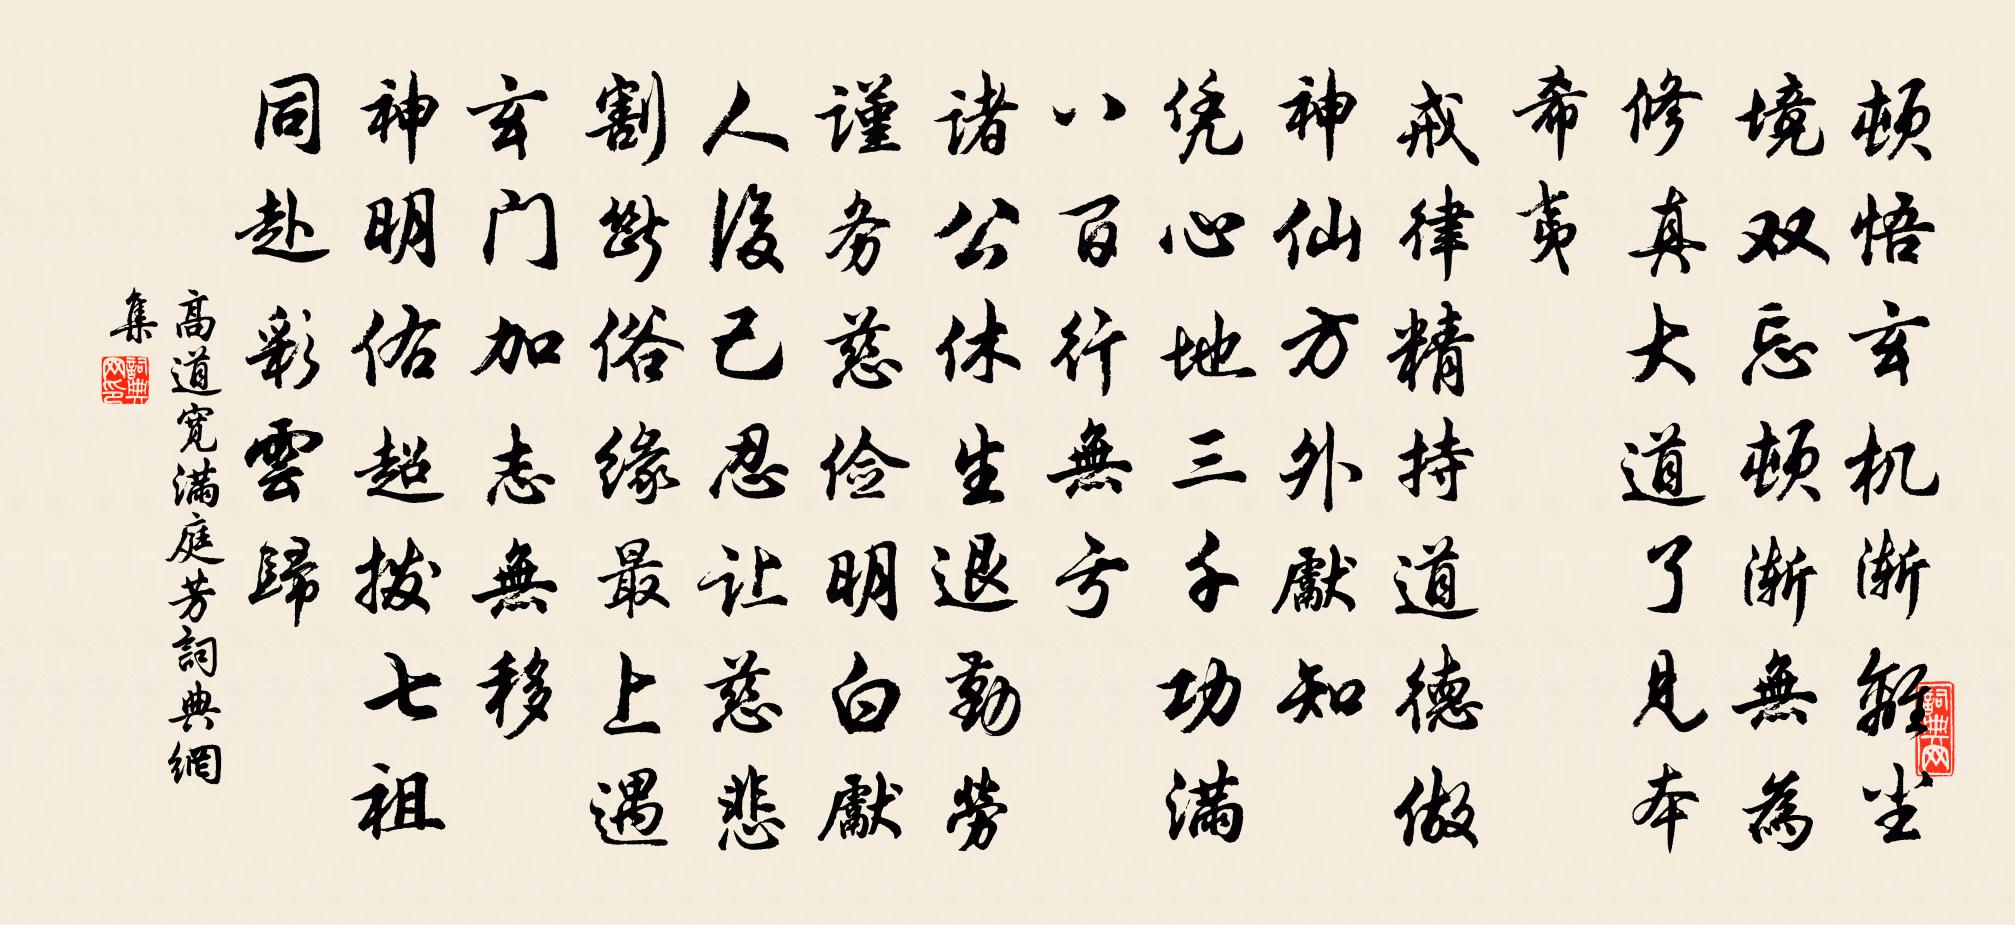 顿悟玄机渐離尘
境双忘顿渐無為
修真大道了见本
希夷
戒律精持道德做
神仙方外獻知
凭心地三千功满
八百行無亏
诸公休生退勤劳
谨务慈俭明白獻
人後己忍让慈悲
割斷俗缘最上遇
玄门加志無移
神明佑超拨七祖
同赴彩雲歸
高道宽满庭芳詞典網
集
詞典网
詞典网印